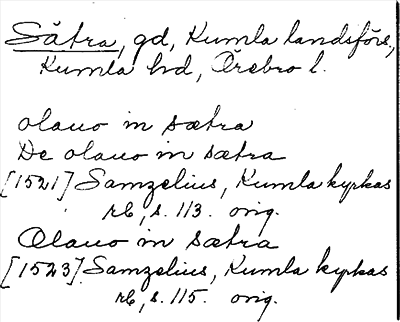 Sätra, gd, Kumla landsförs.,
Kumla hd, Örebro l.
olauo in sætra
De olauo in sætra
[1521] Samzelius, Kumla kyrkas
rb, s. 113. orig.
Olauo in sætra
[1523] Samzelius, Kumla kyrkas
rb, s. 115. orig.